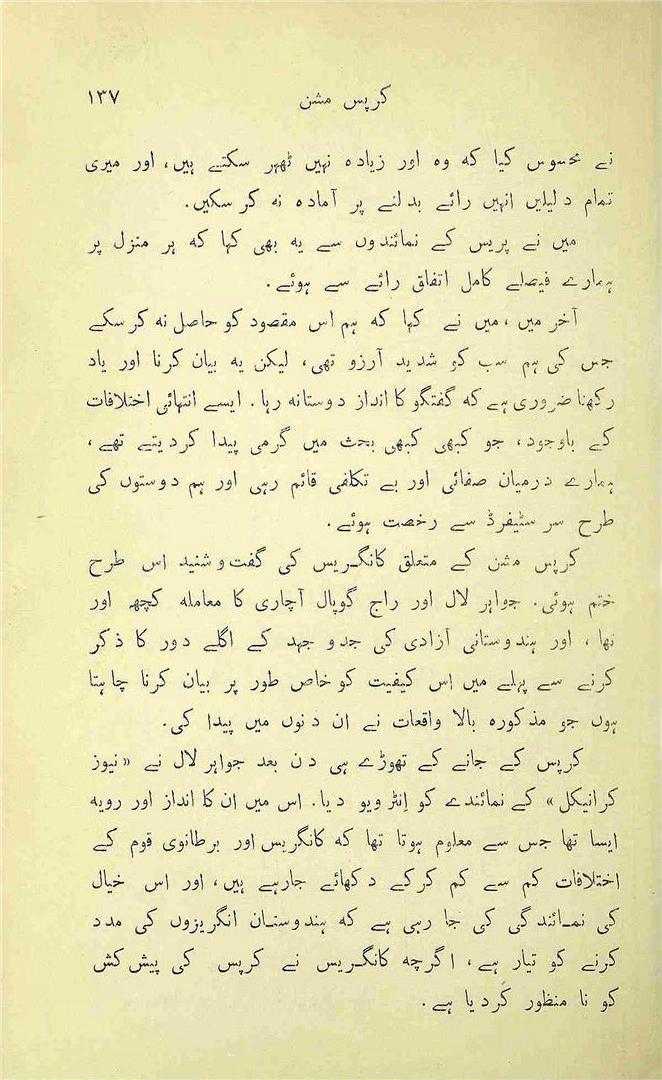 کرپس مشن ۱۳۷
نے محسوس کیا که وہ اور زیادہ نہیں ٹھہر سکتے ہیں، اور میری
تمام دلیلیں انہیں رائے بدلنے پر آمادہ نه کر سکیں.
میں نے پریس کے نمائندوں سے یه بھی کہا که ہر منزل پر
ہمارے فیصلے کامل اتفاق رائے سے ہوئے.
آخر میں، میں نے کہا که ہم اس مقصود کو حاصل نه کرسکے
جس کی ہم سب کو شدید آرزو تھی، لیکن یه بیان کرنا اور یاد
رکھنا ضروری ہے که گفتگو کا انداز دوستانه رہا. ایسے انتہائی اختلافات
کے باوجود، جو کبھی کبھی بحث میں گرمی پیدا کردیتے تھے،
ہمارے درمیان صفائی اور بے تکلفی قائم رہی اور ہم دوستوں کی
طرح سر سٹیفرڈ سے رخصت ہوئے.
کرپس مشن کے متعلق کانگـریس کی گفت و شنید اس طرح
ختم ہوئی. جواہر لال اور راج گوپال آچاری کا معامله کچھ اور
تھا، اور ہندوستانی آزادی کی جدو جہد کے اگلے دور کا ذکر
کرنے سے پہلے میں اس کیفیت کو خاص طور پر بیان کرنا چاہتا
ہوں جو مذکورہ بالا واقعات نے ان دنوں میں پیدا کی.
کرپس کے جانے کے تھوڑے ہی دن بعد جواہر لال نے «نیوز
کرانیکل» کے نمائندے کو اِنٹرویو دیا. اس میں ان کا انداز اور رویه
ایسا تھا جس سے معلوم ہوتا تھا که کانگریس اور برطانوی قوم کے
اختلافات کم سے کم کرکے دکھائے جارہے ہیں، اور اس خیال
کی نمـائندگی کی جا رہی ہے که ہندوستـان انگریزوں کی مدد
کرنے کو تیار ہے، اگرچه کانگـریس نے کرپس کی پیش کش
کو نا منظور کردیا ہے.